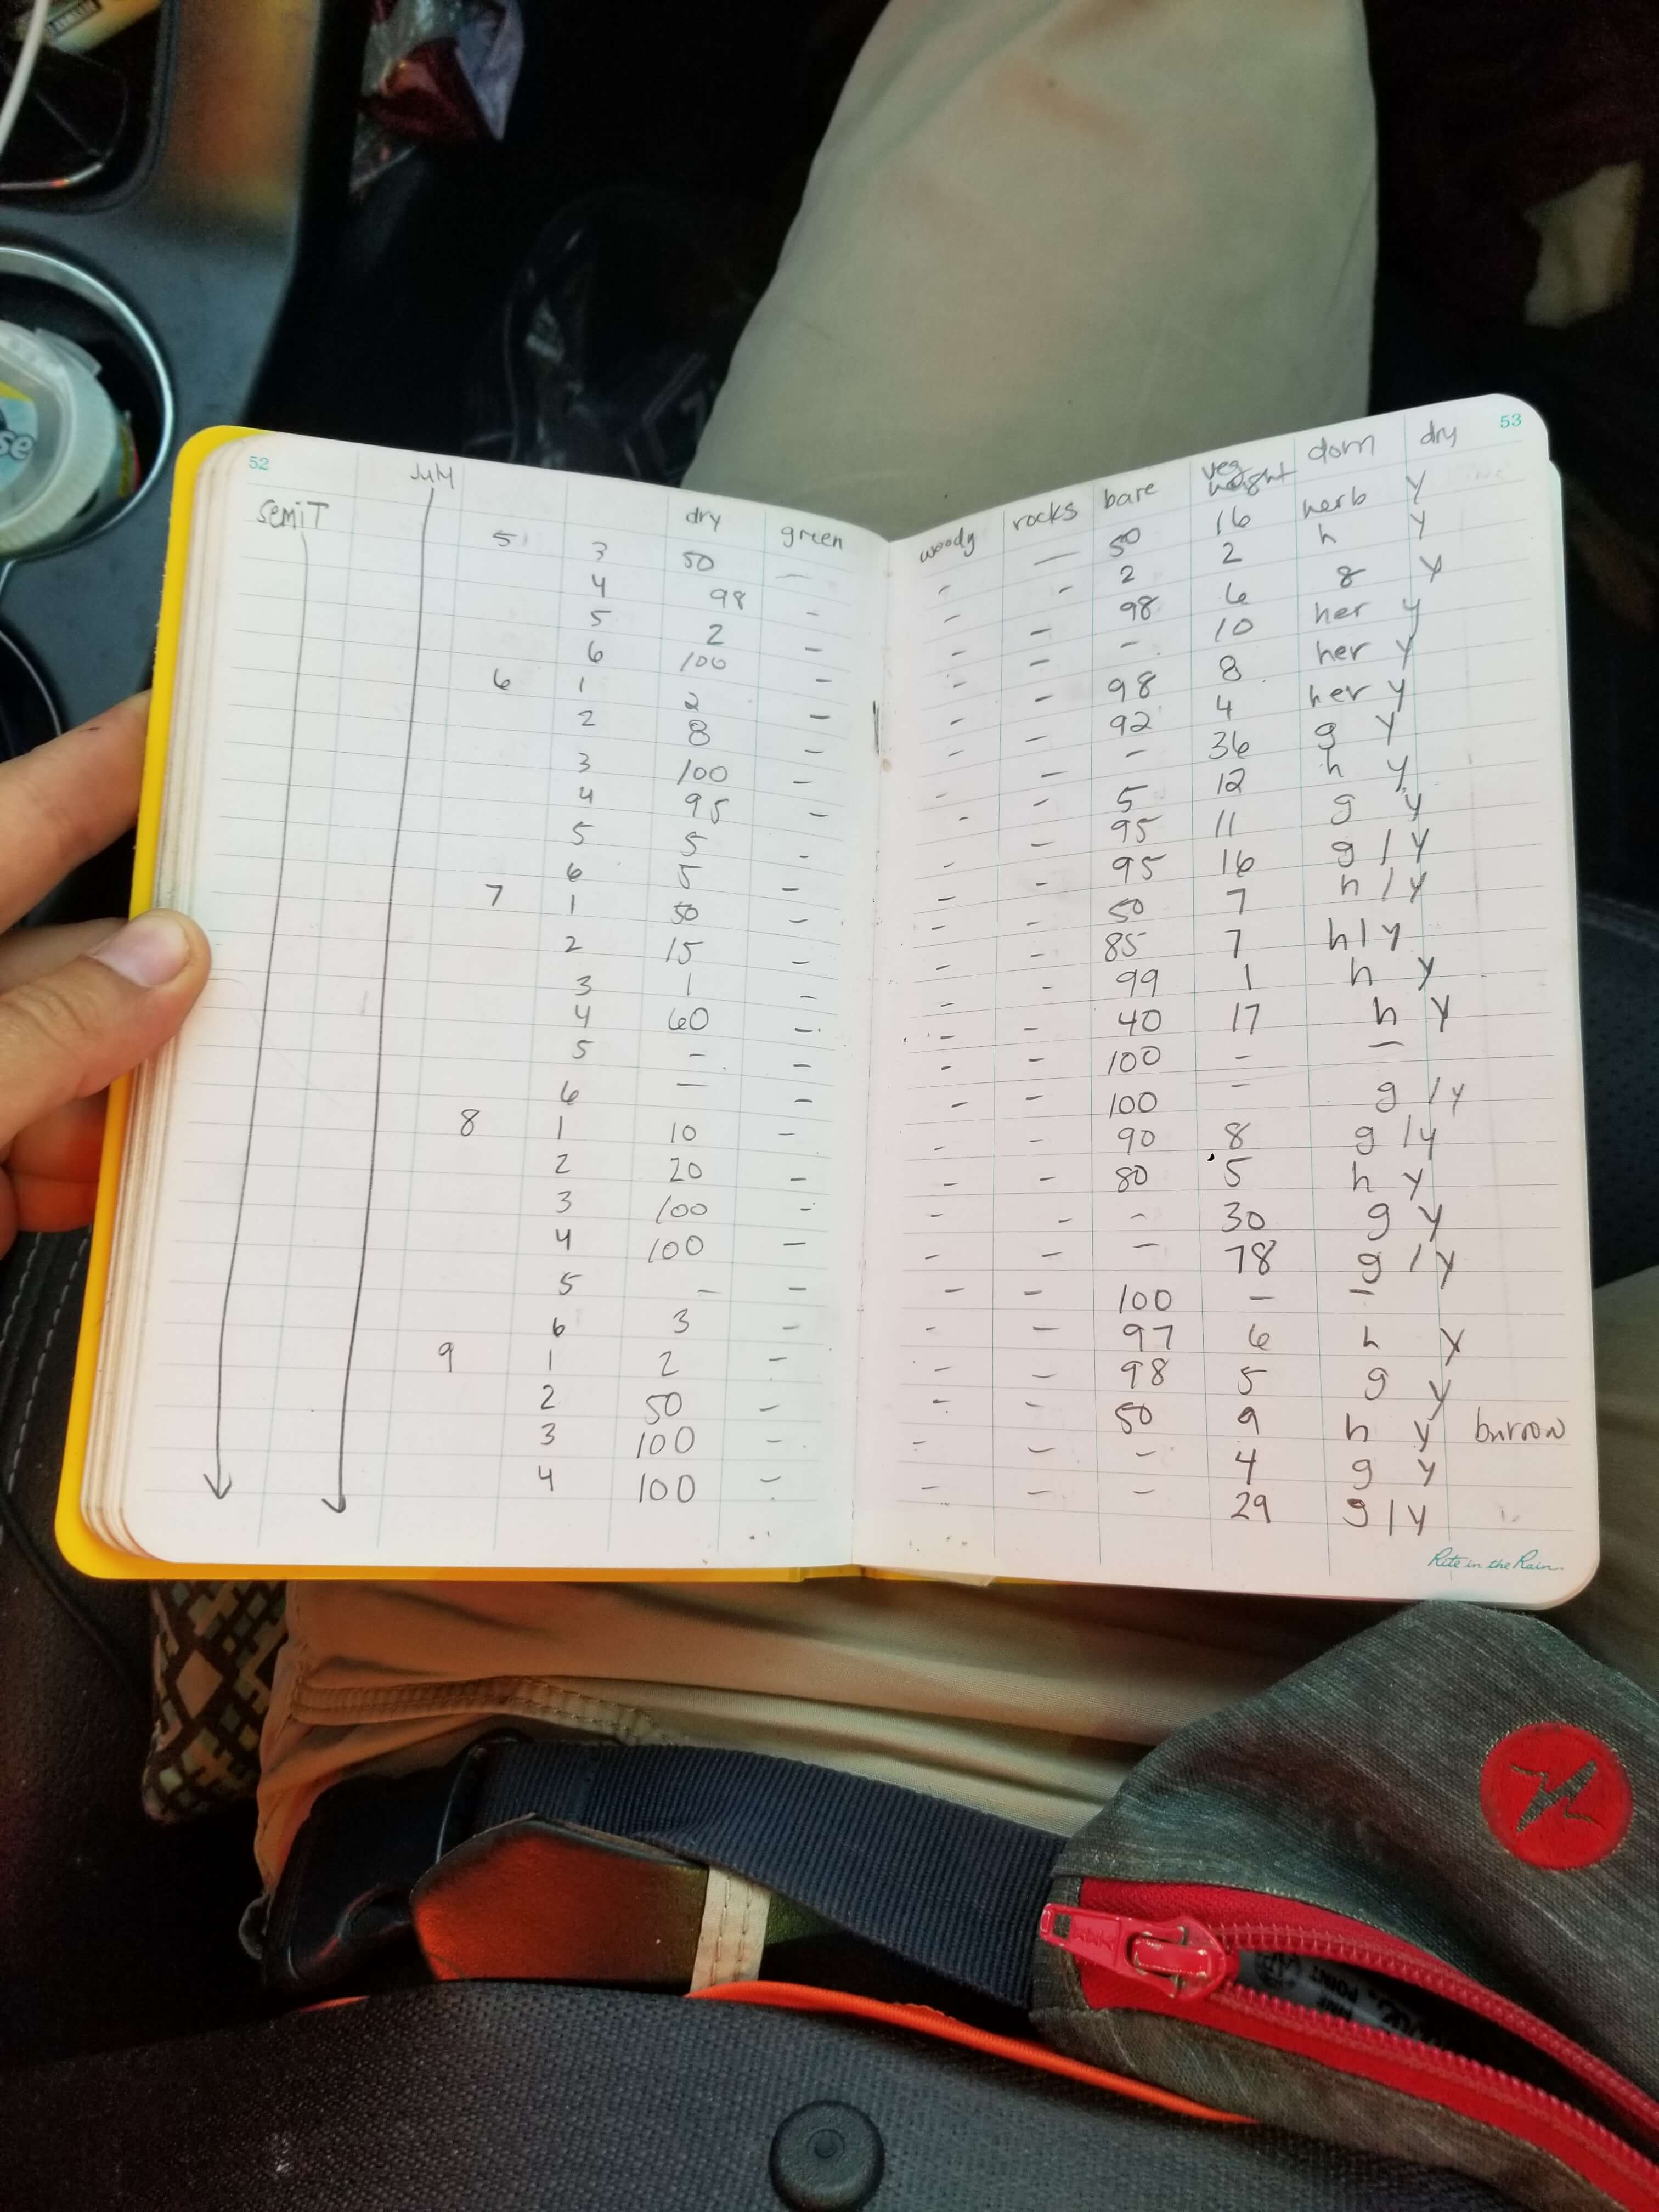 52
semiT July dry green
5 3 50 —
4 98 -
5 2 -
6 100 -
6 1 2 -
2 8 -
3 100 -
4 95 -
5 5 -
6 5 -
7 1 50 -
2 15 -
3 1 -
4 60 -
5 - -
6 — -
8 1 10 -
2 20 -
3 100 -
4 100 -
5 - -
6 3 -
9 1 2 -
2 50 -
3 100 -
4 100 -
53
woody rocks bare veg height dom dry
- — 50 16 herb y
- - 2 2 h y
- - 98 6 g y
- - - 10 her y
- - 98 8 her y
- - 92 4 her y
- - - 36 g y
- - 5 12 h y
- - 95 11 g y
- - 95 16 g / y
- - 50 7 h / y
- - 85 7 h / y
- - 99 1 h y
- - 40 17 h y
- - 100 - -
- - 100 - g / y
- - 90 8 g / y
- - 80 5 h y
- - - 30 g y
- - - 78 g / y
- - 100 - -
- - 97 6 h y
- - 98 5 g y
- - 50 9 h y burrow
- - - 4 g y
- - - 29 g / y
Rite in the Rain